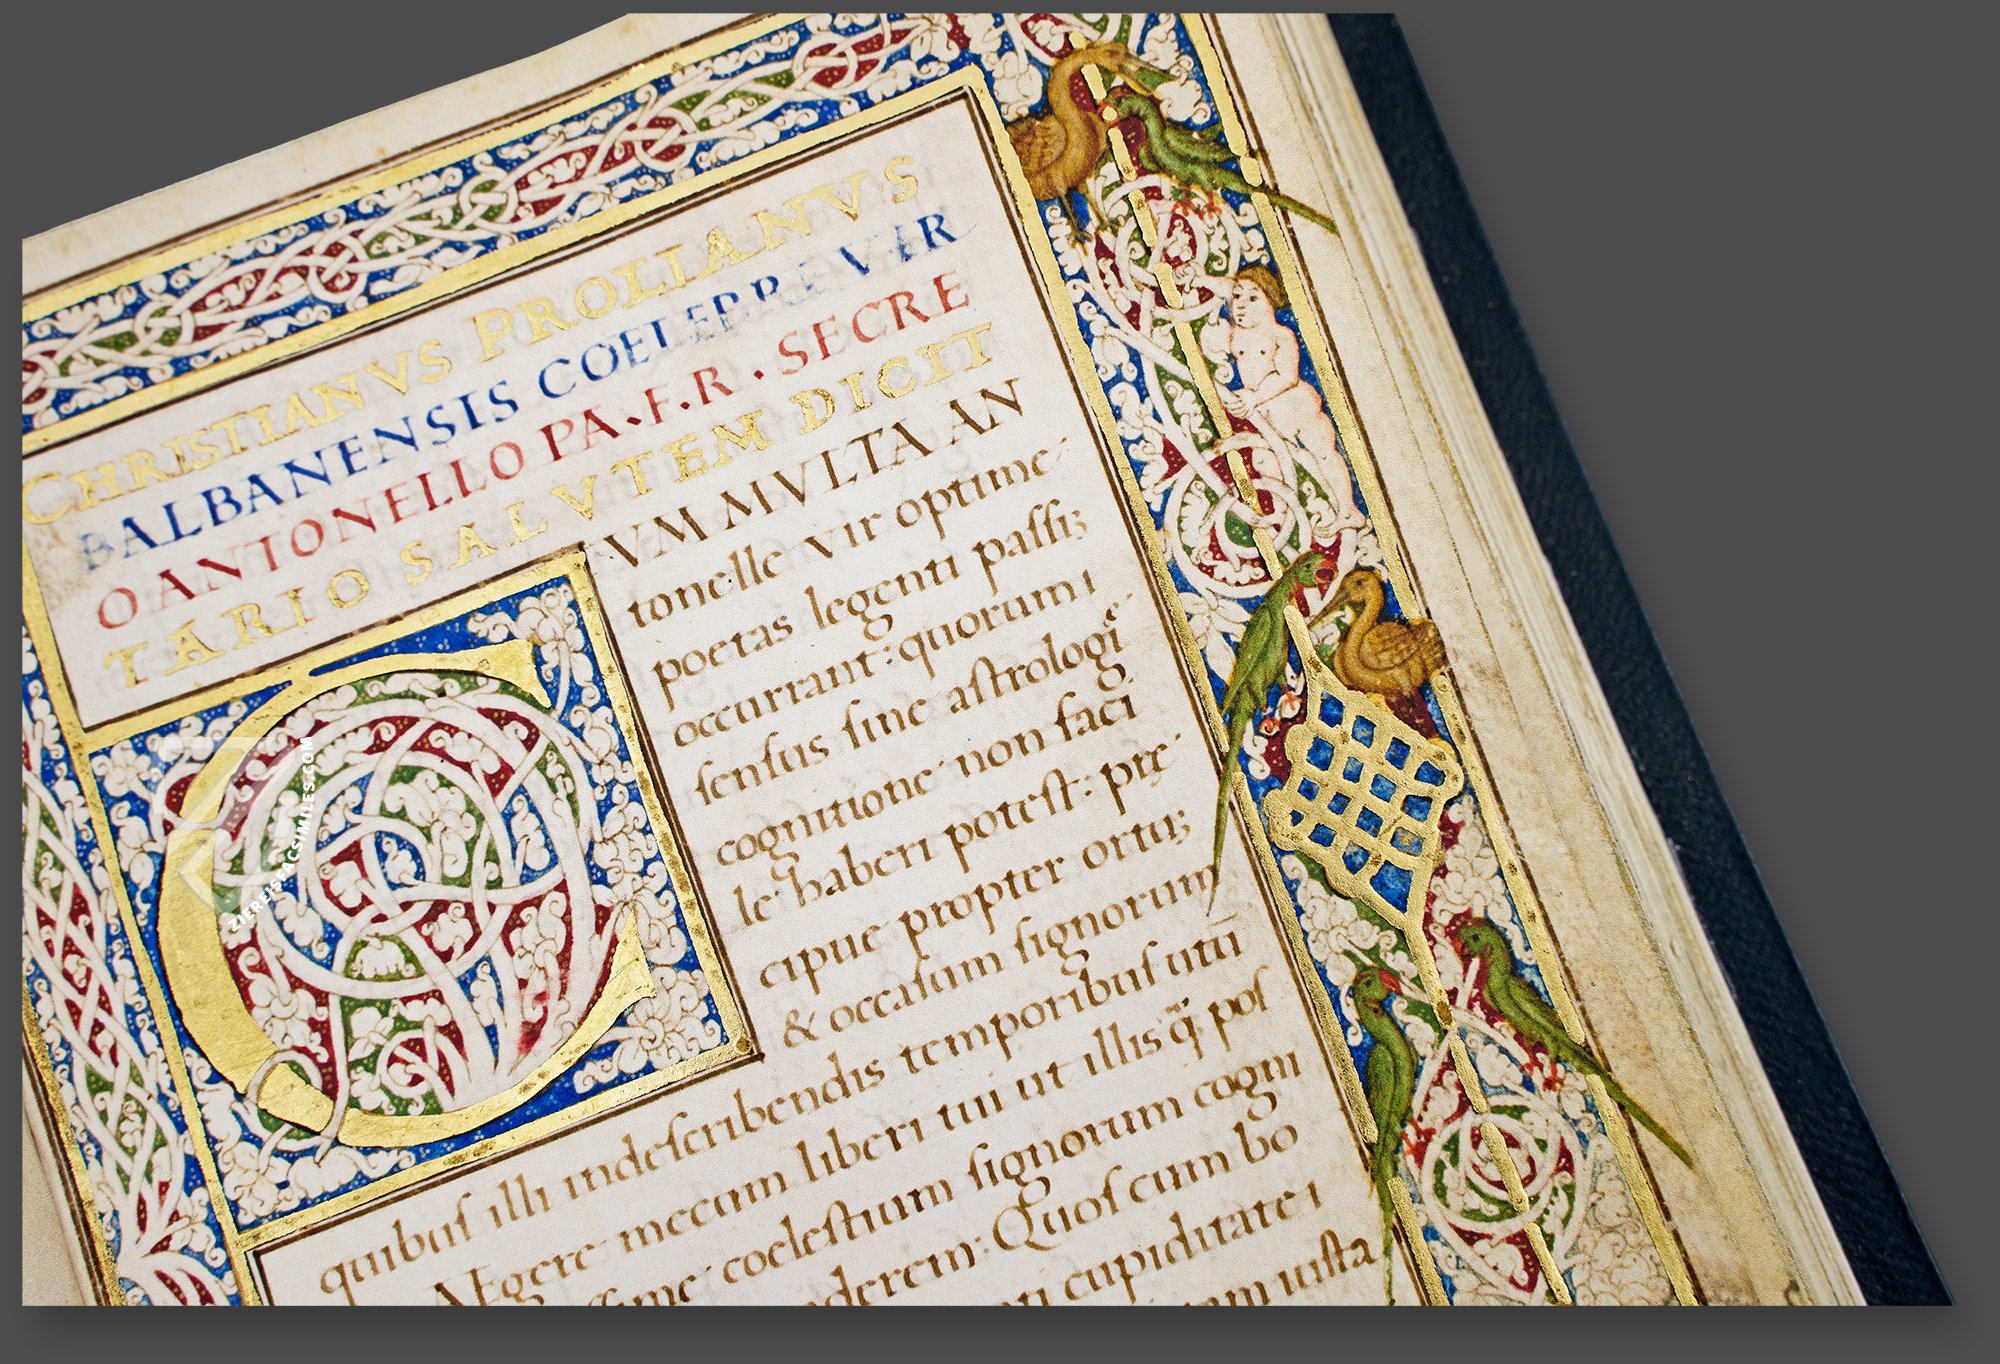 CHRISTIANVS PROLIANVS
BALBANENSIS COELEBRE VIR
O ANTONELLO PA.F.R. SECRE
TARIO SALVTEM DICIT
CVM MVLTA AN
tonelle vir optime
poetas legenti passiʒ
occurrant: quorum i
sensus sine astrologię
cognitione non faci
le haberi potest: prę
cipue propter ortuʒ
& occasum signorum
quibus illi indescribendis temporibus uti
AEgere mecum liberi tui ut illis q̃ pos
coelestium signorum cogni
derem: Quos cum bo
cupiditate i
iusta
ZIEREISFACSIMILES.COM